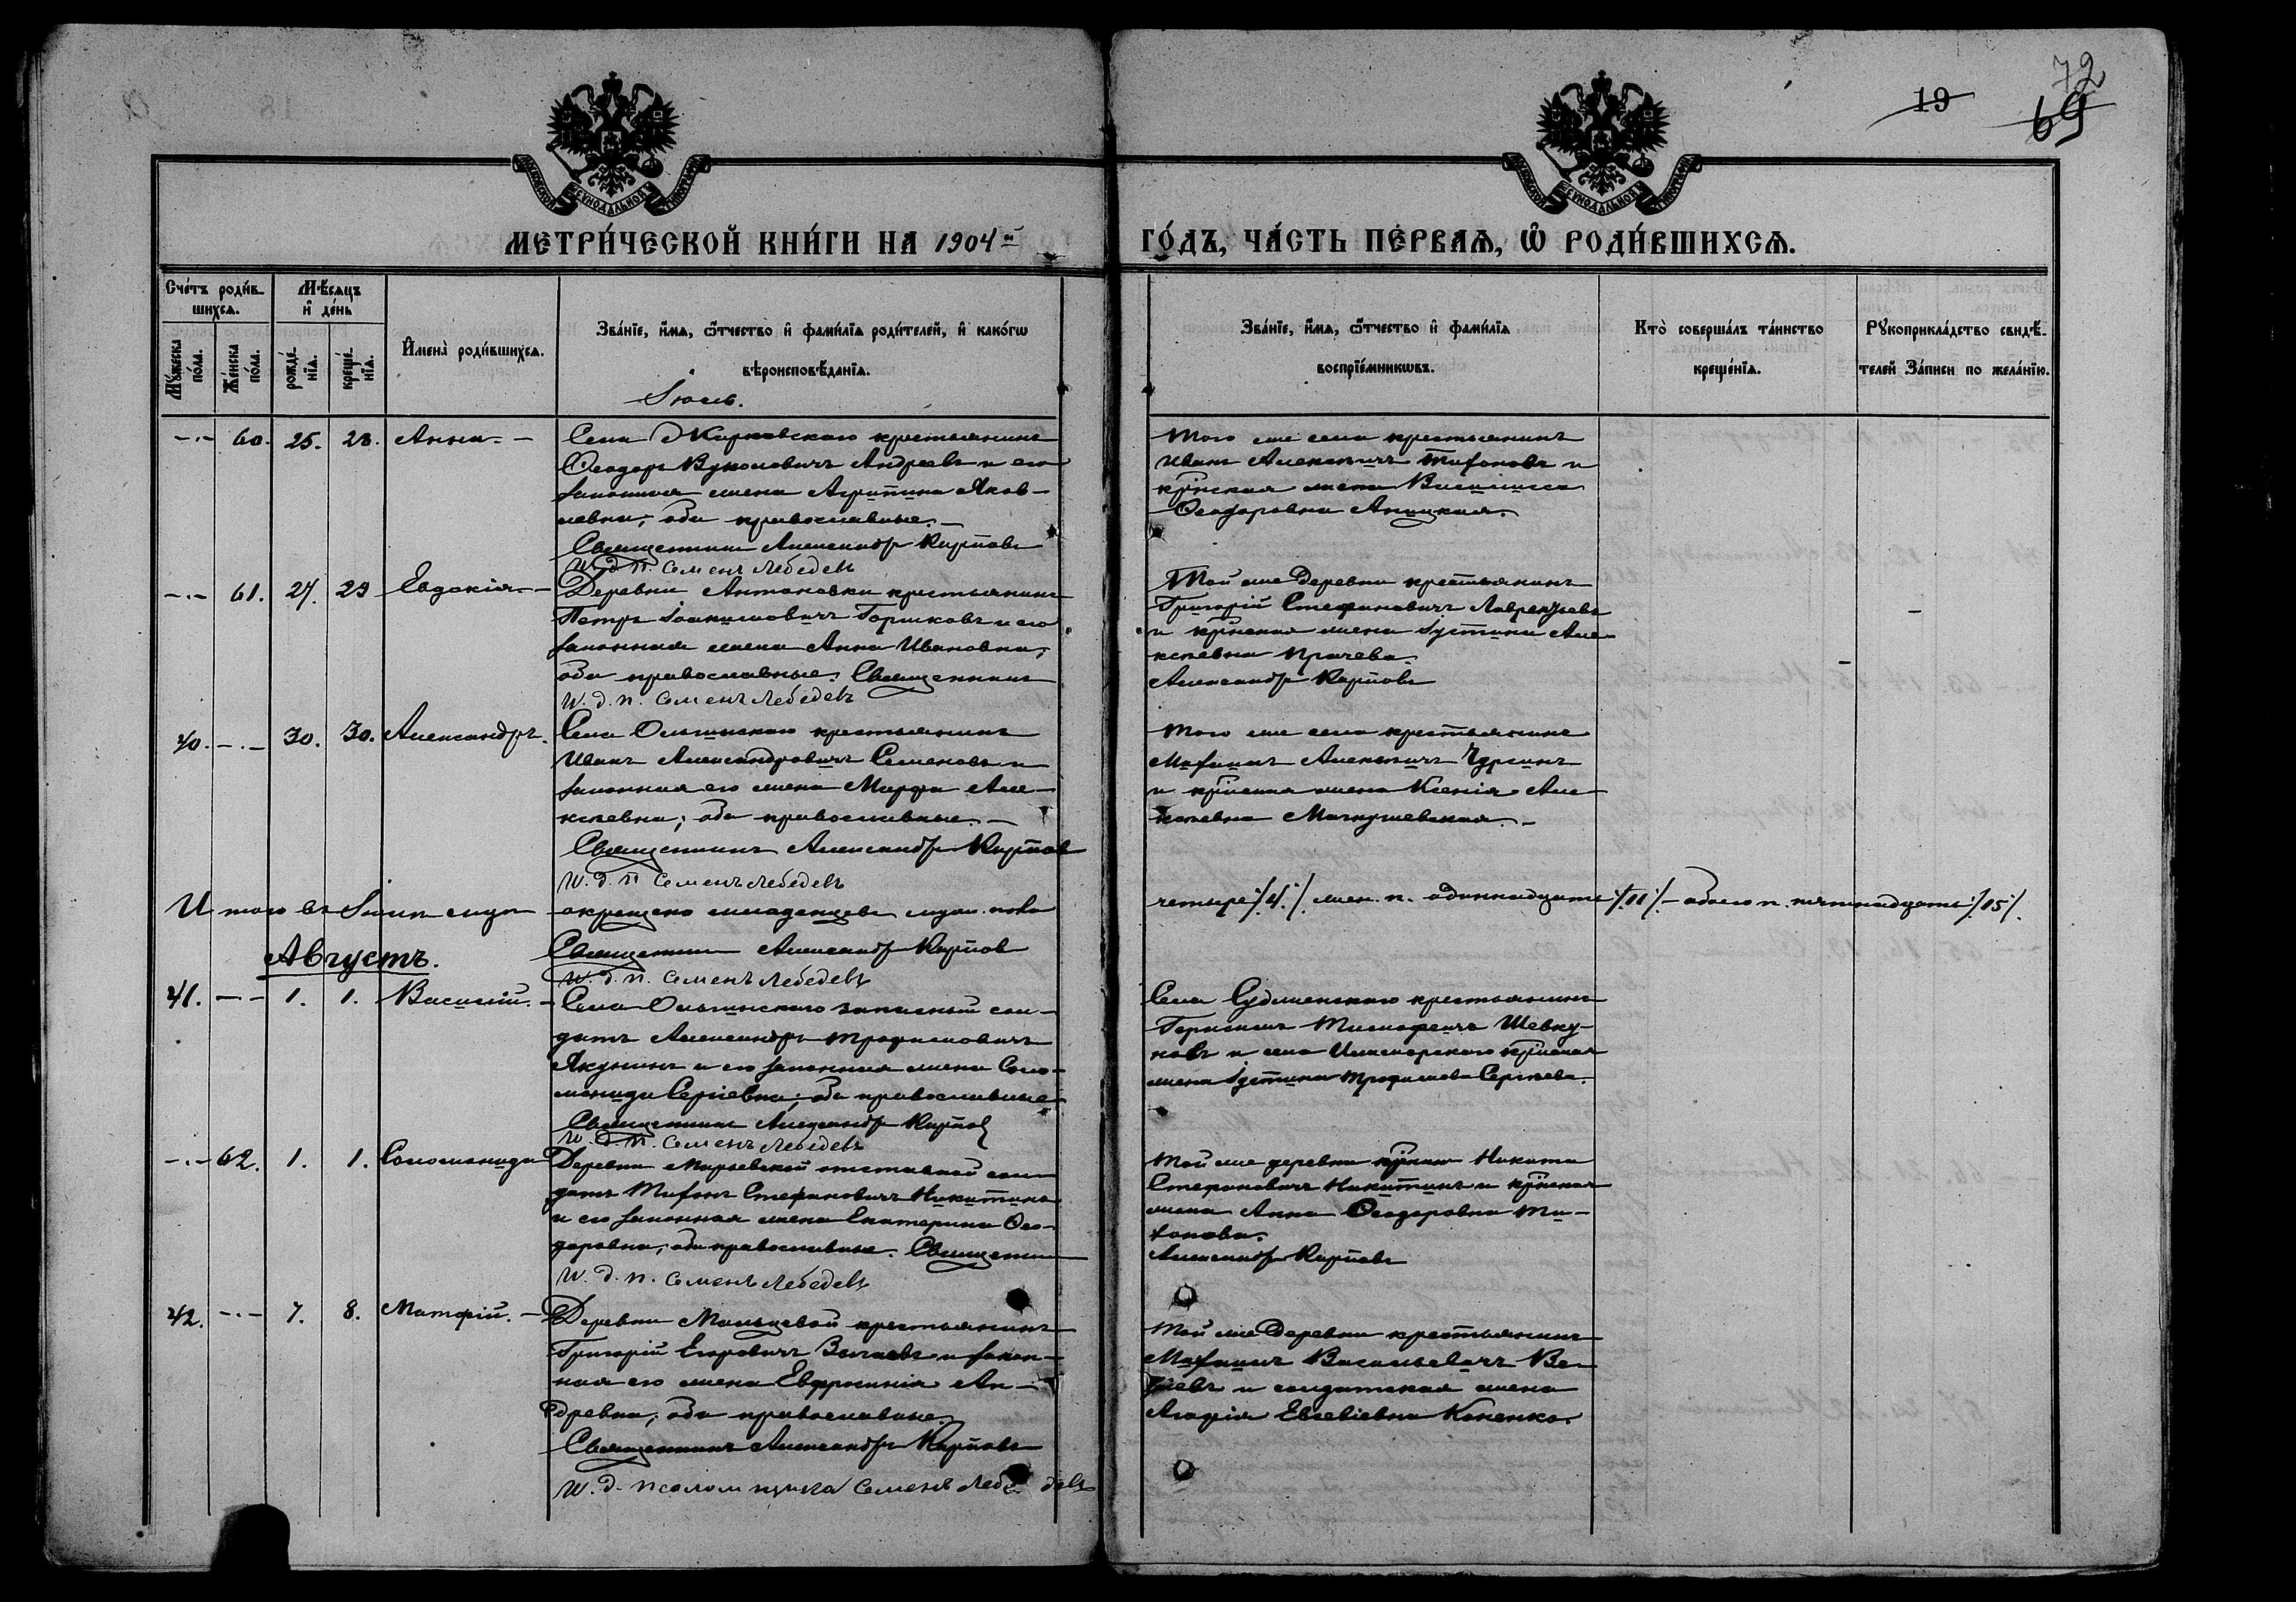 72
19
69
МЕТРИ́ЧЕСКОЙ КНИ́ГИ НА 1904й
ГО́ДЪ, ЧА́СТЬ ПЕ́РВАѦ, Ѽ РОДИ́ВШИХСѦ.
Сче́тъ роди́в-
шихсѧ.
Мѣ́сѧцъ
и҆ де́нь
Мꙋ́жеска по́ла.
Же́нска по́ла.
рожде́-
нїѧ.
креще́-
нїѧ.
И҆мена̀ роди́вшихсѧ.
Зва́нїе, и҆́мѧ, ѻ҆́тчество и҆ фами́лїѧ роди́телей, и҆ како́гѡ
вѣроисповѣ́данїѧ.
Зва́нїе, и҆́мѧ, ѻ҆́тчество и҆ фами́лїѧ
воспрїе́мникѡвъ.
Кто̀ соверша́лъ та́инство
креще́нїѧ.
Рꙋкоприкла́дство свидѣ́-
телей За́писи по жела́нїю.
Іюль.
-.- 60. 25. 28. Анна -
Села Жарковскаго крестьянинъ
Ѳеодоръ Вуколовичъ Андреевъ и его
законная жена Агрипина Яков-
левна; оба православные. -
Священникъ Александръ Карповъ
И. д. п. Семенъ Лебедевъ
Того же села крестьянинъ
Иванъ Алексѣевичъ Тихоновъ и
кр-нская жена Василисса
Ѳеодоровна
-.- 61. 27. 29 Евдокія -
Деревни Антоновки крестьянинъ
Петръ Іоакимовичъ Горшковъ и его
законная жена Анна Ивановна,
оба православные. Священникъ
И. д. п. Семенъ Лебедевъ
Той же деревни крестьянинъ
Григорій Стефановичъ Лаврентьевъ
и кр-нская жена Іустина Але-
ксѣевна
Александръ Карповъ
40. -.- 30. 30. Александръ.
Села Ольгинскаго крестьянинъ
Иванъ Александровичъ Семеновъ и
законная его жена Марфа Але-
ксѣевна; оба православные. -
Священникъ Александръ Карповъ
И. д. п Семенъ Лебедевъ
Того же села крестьянинъ
Михаилъ Алексѣевичъ Чурсинъ
и кр-нская жена Ксенія Але-
ксѣевна
Итого въ Іюлѣ мѣс. окрещено младенцевъ муж. пола
четыре /4/ жен. п. одиннадцать /11/ - обоего п. пятнадцать /15/.
Августъ.
Священникъ Александръ Карповъ
И. д. п. Семенъ Лебедевъ
41. - - 1. 1. Василій. -
Села Ольгинскаго запасный сол-
датъ Александръ Трофимовичъ
Якунинъ и его законная жена Соло-
монида Сергіевна; оба православные
Священникъ Александръ Карповъ
И. д. п. Семенъ Лебедевъ
Села крестьянинъ
Тимофеичъ Шевку-
новъ и села кр-нская
жена Іустина Трофимова Сергѣева.
-.- 62. 1. 1. Соломонида
Деревни Марьевской отставной сол-
датъ Тихонъ Стефановичъ Никитинъ
и его законная жена Екатерина Ѳео-
доровна; оба православные. Священникъ
И. д. п. Семенъ Лебедевъ
Той же деревни Никита
Стефановичъ Никитинъ и кр-нская
жена Анна Ѳеодоровна Ти-
хонова.
Александръ Карповъ
42. -.- 7. 8. Матфій. -
Деревни Мальцевой крестьянинъ
Григорій Егоровичъ и закон-
ная его жена Евфросинія Ан-
дреевна; оба православные.
Священникъ Александръ Карповъ
И. д. псаломщика Семенъ Лебедевъ
Той же деревни крестьянинъ
Михаилъ Васильевичъ
и солдатская жена
Агафія Евсевіевна Коненко.